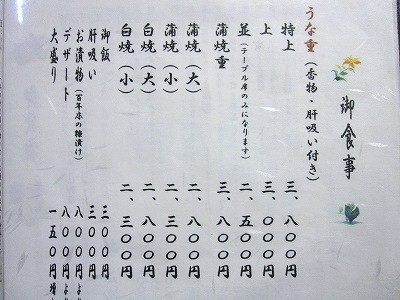 御食事
うな重（香物・肝吸い付き）
特上 三、八〇〇円
上 三、〇〇〇円
並（テーブル席のみになります） 二、五〇〇円
蒲焼重 三、八〇〇円
蒲焼（大） 二、八〇〇円
蒲焼（小） 二、三〇〇円
白焼（大） 二、八〇〇円
白焼（小） 二、三〇〇円
御飯 三〇〇円
肝吸い 三〇〇円
お漬物（百年床の糠漬け） 八〇〇円より
デザート 八〇〇円より
大盛り 一五〇円増